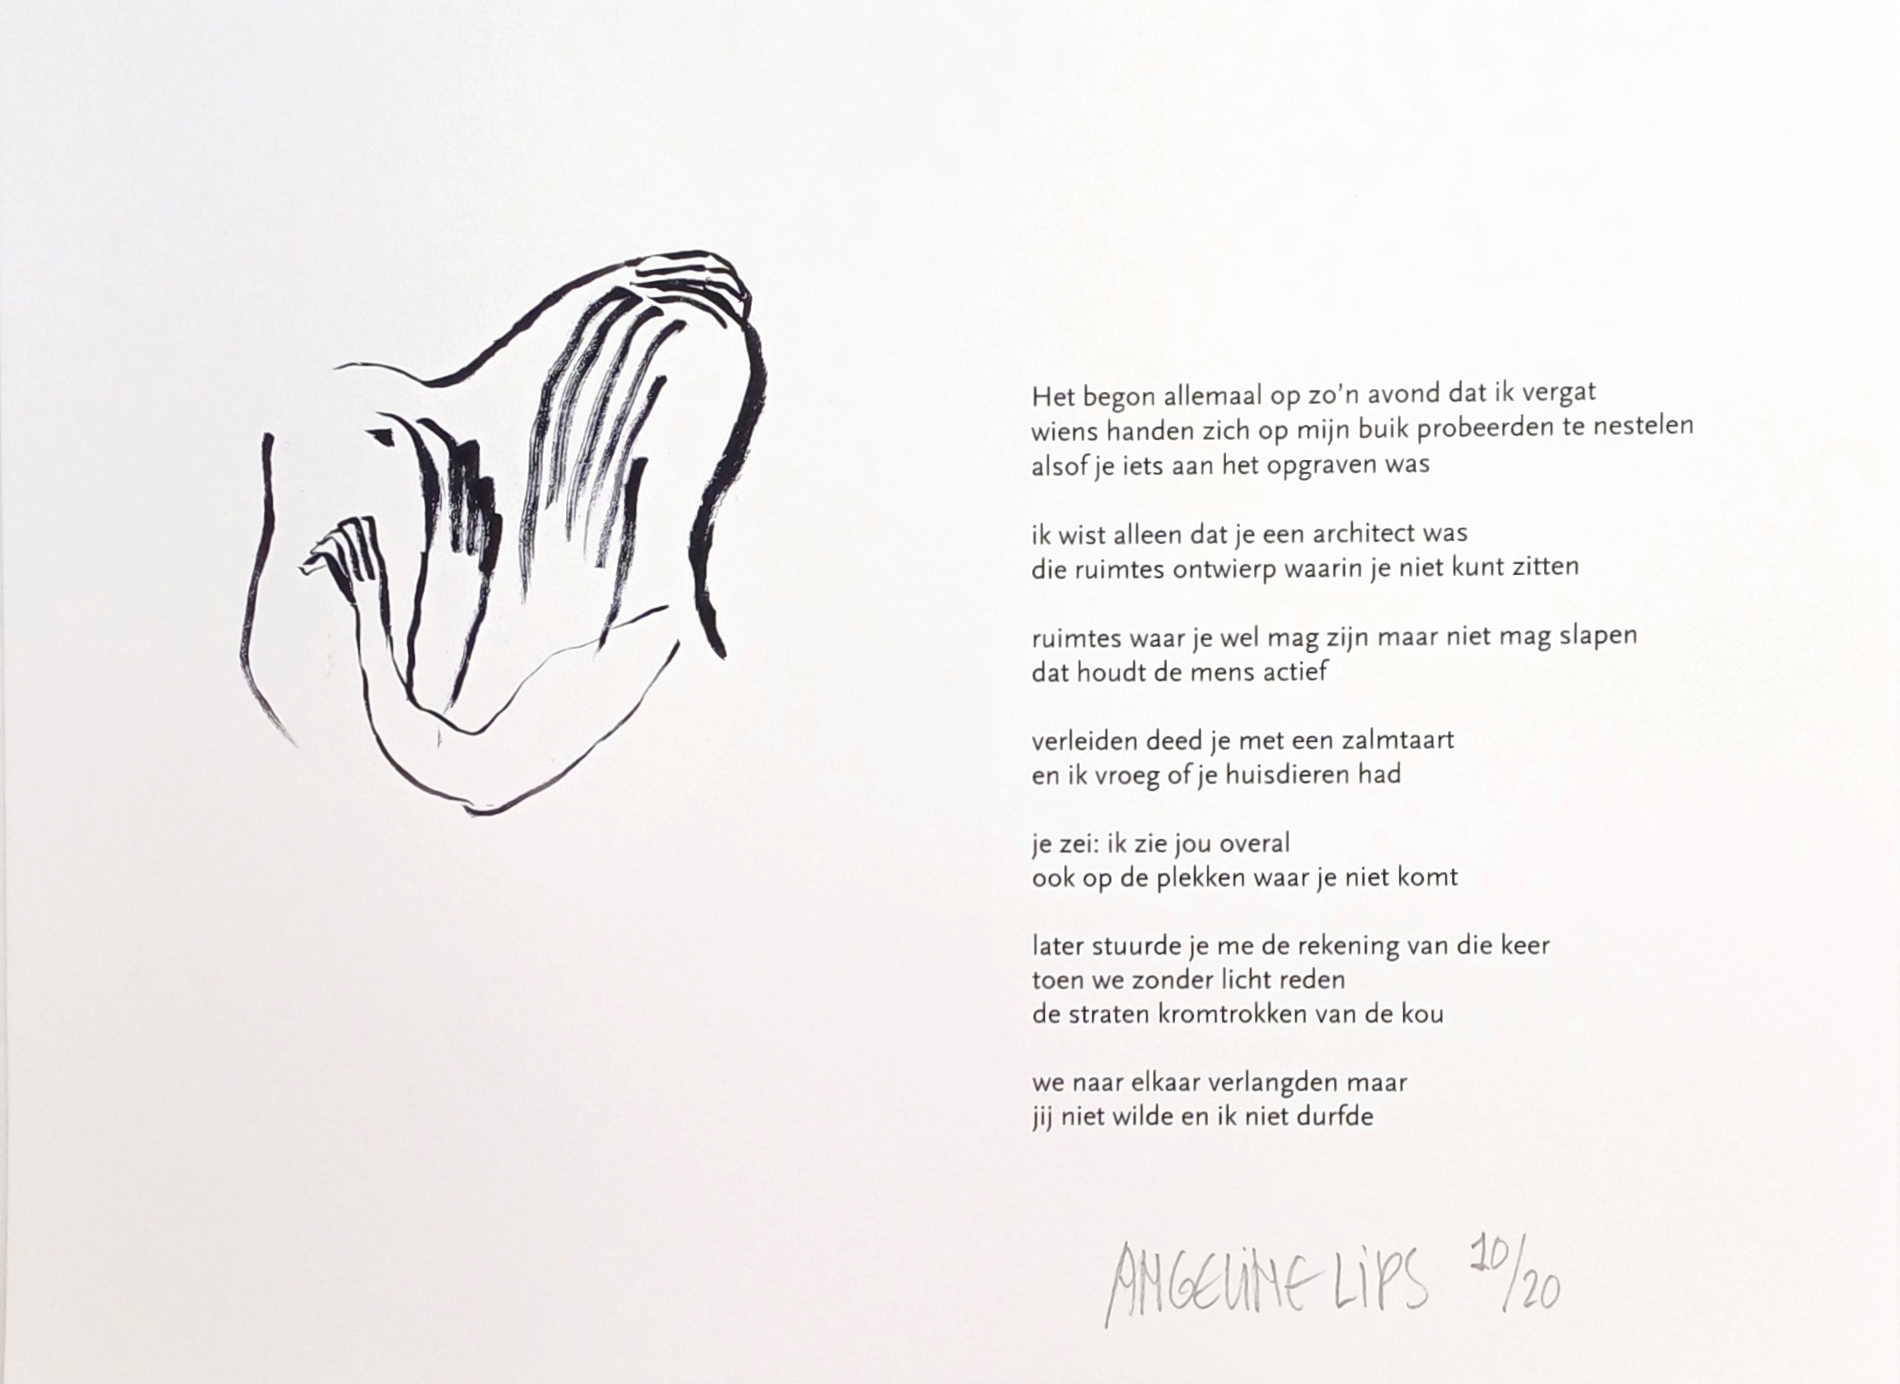 Het begon allemaal op zo'n avond dat ik vergat
wiens handen zich op mijn buik probeerden te nestelen
alsof je iets aan het opgraven was
ik wist alleen dat je een architect was
die ruimtes ontwierp waarin je niet kunt zitten
ruimtes waar je wel mag zijn maar niet mag slapen
dat houdt de mens actief
verleiden deed je met een zalmtaart
en ik vroeg of je huisdieren had
je zei: ik zie jou overal
ook op de plekken waar je niet komt
later stuurde je me de rekening van die keer
toen we zonder licht reden
de straten kromtrokken van de kou
we naar elkaar verlangden maar
jij niet wilde en ik niet durfde
ANGELINE LIPS 10/20